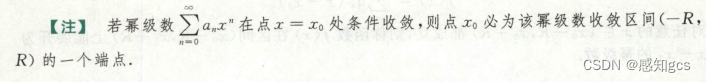 【注】 若幂级数 $\sum_{n=0}^{\infty} a_n x^n$ 在点 $x = x_0$ 处条件收敛,则点 $x_0$ 必为该幂级数收敛区间$(-R,$
$R)$ 的一个端点.
CSDN @感知gcs